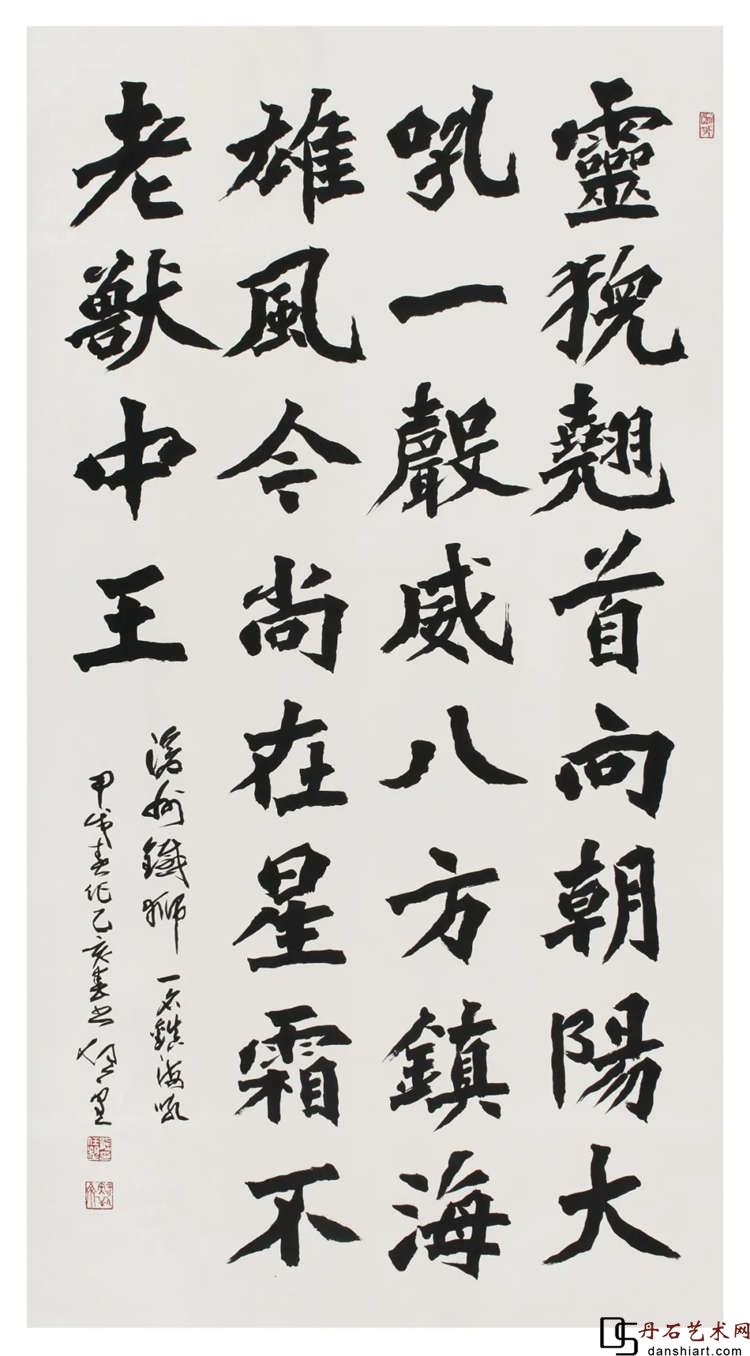 靈猊翹首向朝陽大
吼一聲威八方鎮海
雄風令尚在星霜不
老獸中王
滄州鐵獅 一名鎮海吼
甲戌春作乙亥春书
丹石艺术网
danshiart.com